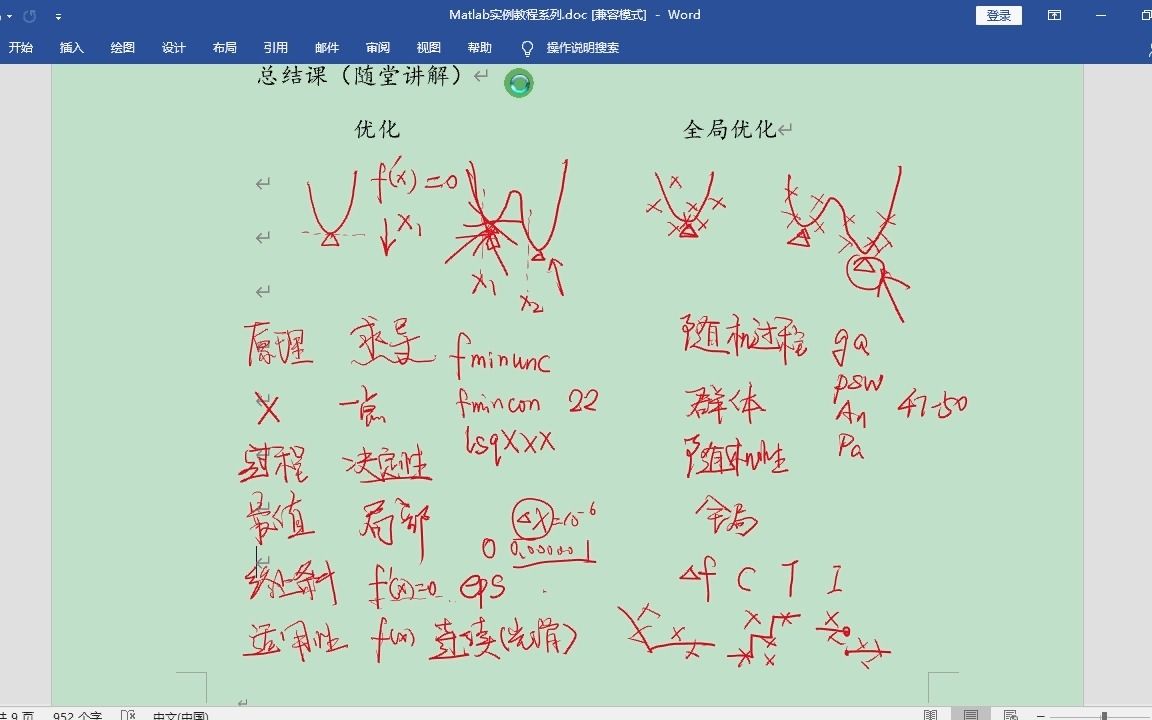 Matlab实例教程系列.doc [兼容模式] - Word 登录
开始 插入 绘图 设计 布局 引用 邮件 审阅 视图 帮助 操作说明搜索
总结课（随堂讲解）
优化 全局优化
f'(x)=0
x1
x1 x2
原理 求导 fminunc 随机过程 ga
X 一点 fmincon 22 群体 psw An 47-50
过程 决定性 lsqXXX 随机性 Pa
最值 局部 Δx=10-6 全局
0 0.000001
终止条件 f'(x)=0 eps Δf C T I
适用性 f(x) 连续(光滑)
共 9 页 952 个字 中文(中国)